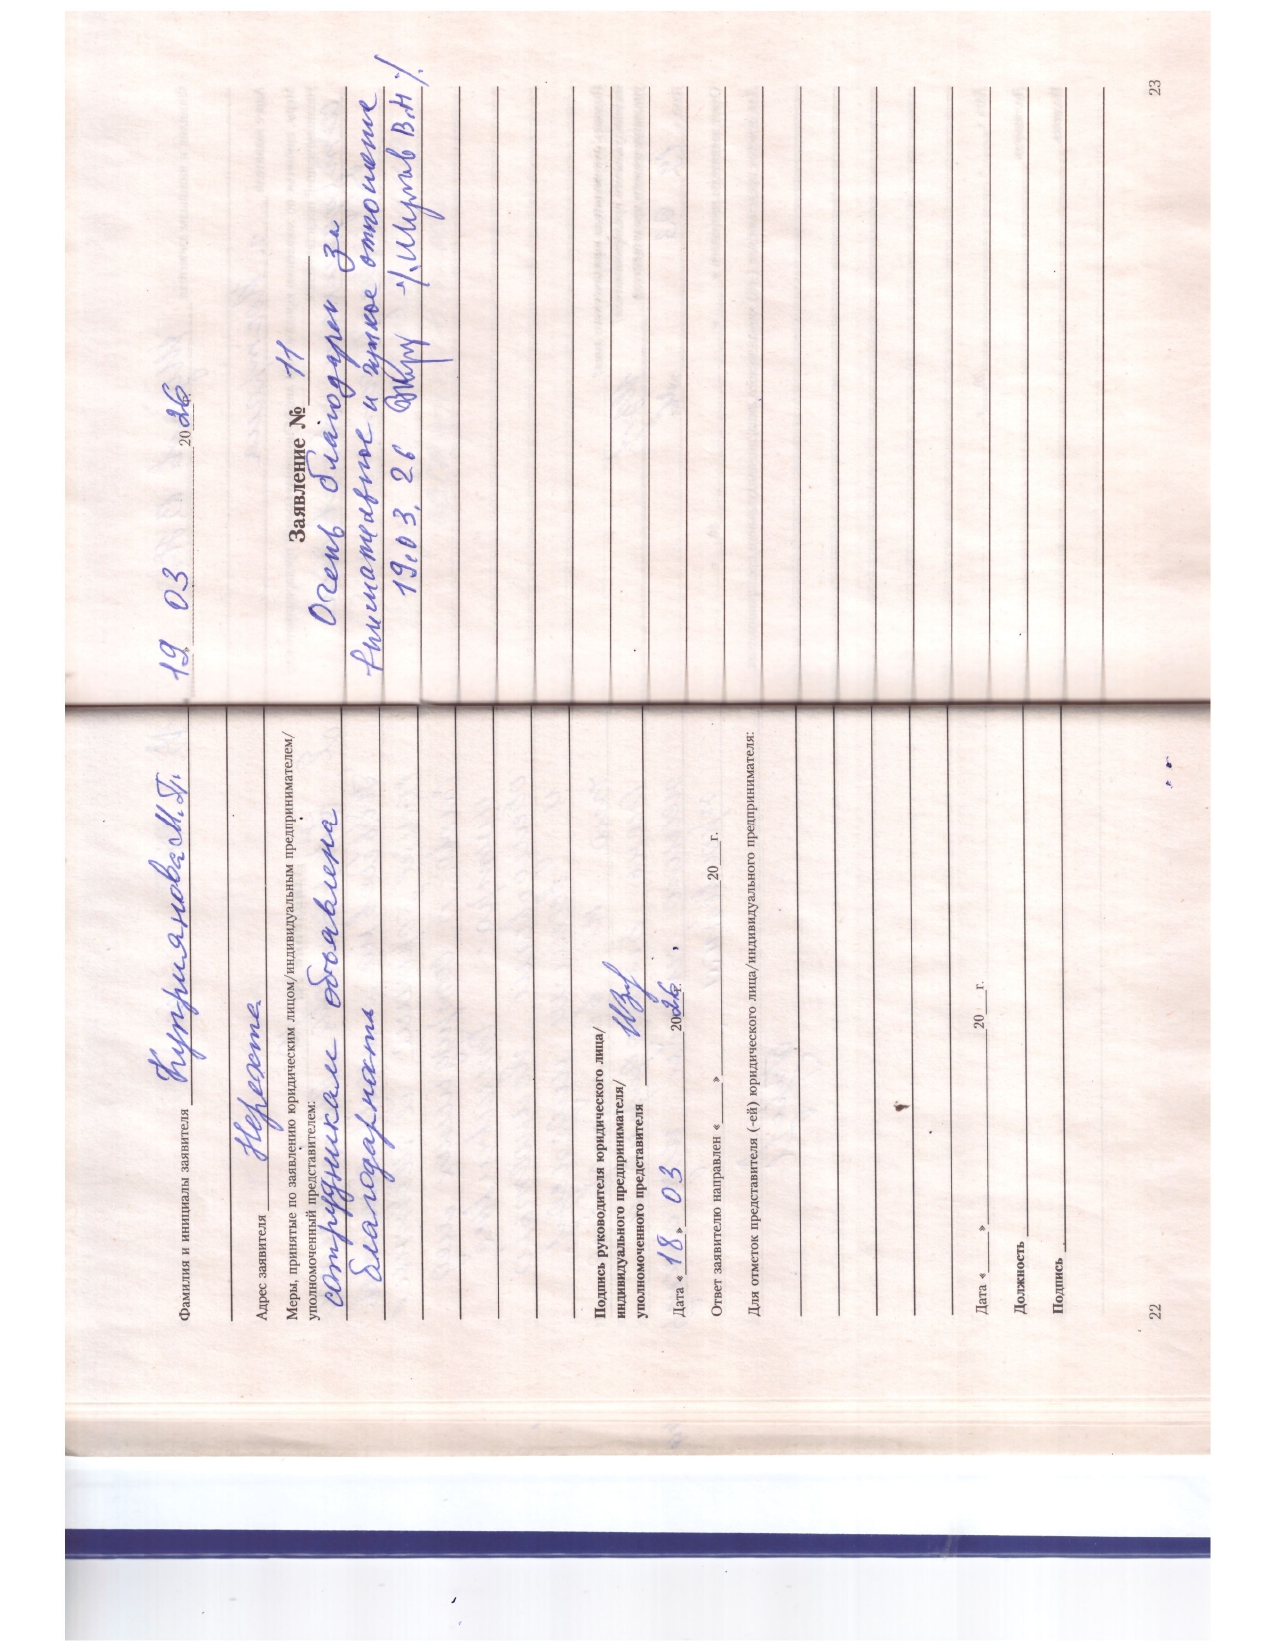 Фамилия и инициалы заявителя Куприянова М.П.
Адрес заявителя Нерехта
Меры, принятые по заявлению юридическим лицом/индивидуальным предпринимателем/
уполномоченный представителем:
сотрудникам объявлена
благодарность
Подпись руководителя юридического лица/
индивидуального предпринимателя/
уполномоченного представителя
Дата « 18 » 03 2026 г.
Ответ заявителю направлен «____»____________20__г.
Для отметок представителя (-ей) юридического лица/индивидуального предпринимателя:
Дата «____»____________20__г.
Должность
Подпись
22
19 03 2026
Заявление № 11
Очень благодарен за
внимательное и чуткое отношение
19.03.26 В.Н
23